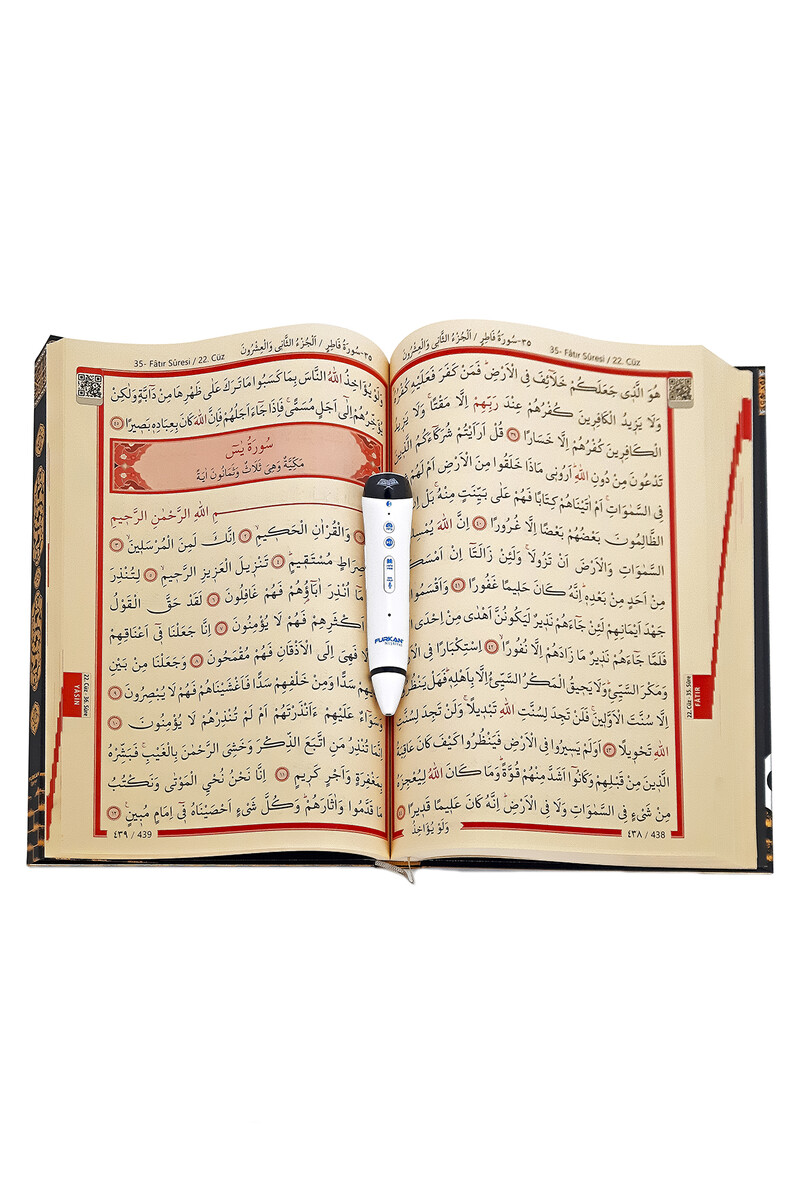 ٣٥-سُورَةُ فَاطِرٍ / اَلْجُزْءُ الثَّانِي وَالْعِشْرُونَ
35- Fâtır Sûresi / 22. Cüz
هُوَ الَّذ۪ي جَعَلَكُمْ خَلَٓائِفَ فِي الْاَرْضِۜ فَمَنْ كَفَرَ فَعَلَيْهِ كُفْرُهُۜ
وَلَا يَز۪يدُ الْكَافِر۪ينَ كُفْرُهُمْ عِنْدَ رَبِّهِمْ اِلَّا مَقْتًاۚ وَلَا يَز۪يدُ
الْكَافِر۪ينَ كُفْرُهُمْ اِلَّا خَسَارًا ﴿٣٩﴾ قُلْ اَرَاَيْتُمْ شُرَكَٓاءَكُمُ الَّذ۪ينَ
تَدْعُونَ مِنْ دُونِ اللّٰهِۜ اَرُون۪ي مَاذَا خَلَقُوا مِنَ الْاَرْضِ اَمْ لَهُمْ
فِي السَّمٰوَاتِۚ اَمْ اٰتَيْنَاهُمْ كِتَابًا فَهُمْ عَلٰى بَيِّنَتٍ مِنْهُۚ بَلْ
الظَّالِمُونَ بَعْضُهُمْ بَعْضًا اِلَّا غُرُورًا ﴿٤٠﴾ اِنَّ اللّٰهَ
السَّمٰوَاتِ وَالْاَرْضَ اَنْ تَزُولَاۚ وَلَئِنْ زَالَتَٓا اِنْ
مِنْ اَحَدٍ مِنْ بَعْدِه۪ۜ اِنَّهُ كَانَ حَل۪يمًا غَفُورًا ﴿٤١﴾ وَاَقْسَمُوا
جَهْدَ اَيْمَانِهِمْ لَئِنْ جَٓاءَهُمْ نَذ۪يرٌ لَيَكُونُنَّ اَهْدٰى مِنْ اِحْدَى
فَلَمَّا جَٓاءَهُمْ نَذ۪يرٌ مَا زَادَهُمْ اِلَّا نُفُورًاۙ ﴿٤٢﴾ اِسْتِكْبَارًا فِي
وَمَكْرَ السَّيِّئِۜ وَلَا يَح۪يقُ الْمَكْرُ السَّيِّئُ اِلَّا بِاَهْلِه۪ۜ فَهَلْ
اِلَّا سُنَّتَ الْاَوَّل۪ينَۚ فَلَنْ تَجِدَ لِسُنَّتِ اللّٰهِ تَبْد۪يلًاۚ وَلَنْ تَجِدَ لِسُنَّتِ
اللّٰهِ تَحْو۪يلًا ﴿٤٣﴾ اَوَلَمْ يَس۪يرُوا فِي الْاَرْضِ فَيَنْظُرُوا كَيْفَ كَانَ عَاقِبَةُ
الَّذ۪ينَ مِنْ قَبْلِهِمْ وَكَانُٓوا اَشَدَّ مِنْهُمْ قُوَّةًۜ وَمَا كَانَ اللّٰهُ لِيُعْجِزَهُ
مِنْ شَيْءٍ فِي السَّمٰوَاتِ وَلَا فِي الْاَرْضِۜ اِنَّهُ كَانَ عَل۪يمًا قَد۪يرًا ﴿٤٤﴾
وَلَوْ يُؤَاخِذُ
٤٣٨ / 438
22. Cüz - 35. Sûre
FATIR
٣٥-سُورَةُ فَاطِرٍ / اَلْجُزْءُ الثَّانِي وَالْعِشْرُونَ
35- Fâtır Sûresi / 22. Cüz
وَلَوْ يُؤَاخِذُ اللّٰهُ النَّاسَ بِمَا كَسَبُوا مَا تَرَكَ عَلٰى ظَهْرِهَا مِنْ دَٓابَّةٍ وَلٰكِنْ
يُؤَخِّرُهُمْ اِلٰٓى اَجَلٍ مُسَمًّىۚ فَاِذَا جَٓاءَ اَجَلُهُمْ فَاِنَّ اللّٰهَ كَانَ بِعِبَادِه۪ بَص۪يرًا ﴿٤٥﴾
سُورَةُ يٰسٓ
مَكِّيَّةٌ وَهِيَ ثَلَاثٌ وَثَمَانُونَ اٰيَةً
بِسْمِ اللّٰهِ الرَّحْمٰنِ الرَّح۪يمِ
وَالْقُرْاٰنِ الْحَك۪يمِۙ ﴿٢﴾ اِنَّكَ لَمِنَ الْمُرْسَل۪ينَۙ ﴿٣﴾
صِرَاطٍ مُسْتَق۪يمٍۜ ﴿٤﴾ تَنْز۪يلَ الْعَز۪يزِ الرَّح۪يمِۙ ﴿٥﴾ لِتُنْذِرَ
مَٓا اُنْذِرَ اٰبَٓاؤُ۬هُمْ فَهُمْ غَافِلُونَ ﴿٦﴾ لَقَدْ حَقَّ الْقَوْلُ
اَكْثَرِهِمْ فَهُمْ لَا يُؤْمِنُونَ ﴿٧﴾ اِنَّا جَعَلْنَا ف۪ٓي اَعْنَاقِهِمْ
فَهِيَ اِلَى الْاَذْقَانِ فَهُمْ مُقْمَحُونَ ﴿٨﴾ وَجَعَلْنَا مِنْ بَيْنِ
سَدًّا وَمِنْ خَلْفِهِمْ سَدًّا فَاَغْشَيْنَاهُمْ فَهُمْ لَا يُبْصِرُونَ ﴿٩﴾
وَسَوَٓاءٌ عَلَيْهِمْ ءَاَنْذَرْتَهُمْ اَمْ لَمْ تُنْذِرْهُمْ لَا يُؤْمِنُونَ ﴿١٠﴾
اِنَّمَا تُنْذِرُ مَنِ اتَّبَعَ الذِّكْرَ وَخَشِيَ الرَّحْمٰنَ بِالْغَيْبِۚ فَبَشِّرْهُ
بِمَغْفِرَةٍ وَاَجْرٍ كَر۪يمٍ ﴿١١﴾ اِنَّا نَحْنُ نُحْيِ الْمَوْتٰى وَنَكْتُبُ
مَا قَدَّمُوا وَاٰثَارَهُمْۜ وَكُلَّ شَيْءٍ اَحْصَيْنَاهُ ف۪ٓي اِمَامٍ مُب۪ينٍ ﴿١٢﴾
٤٣٩ / 439
22. Cüz - 36. Sûre
YASİN
FURKAN